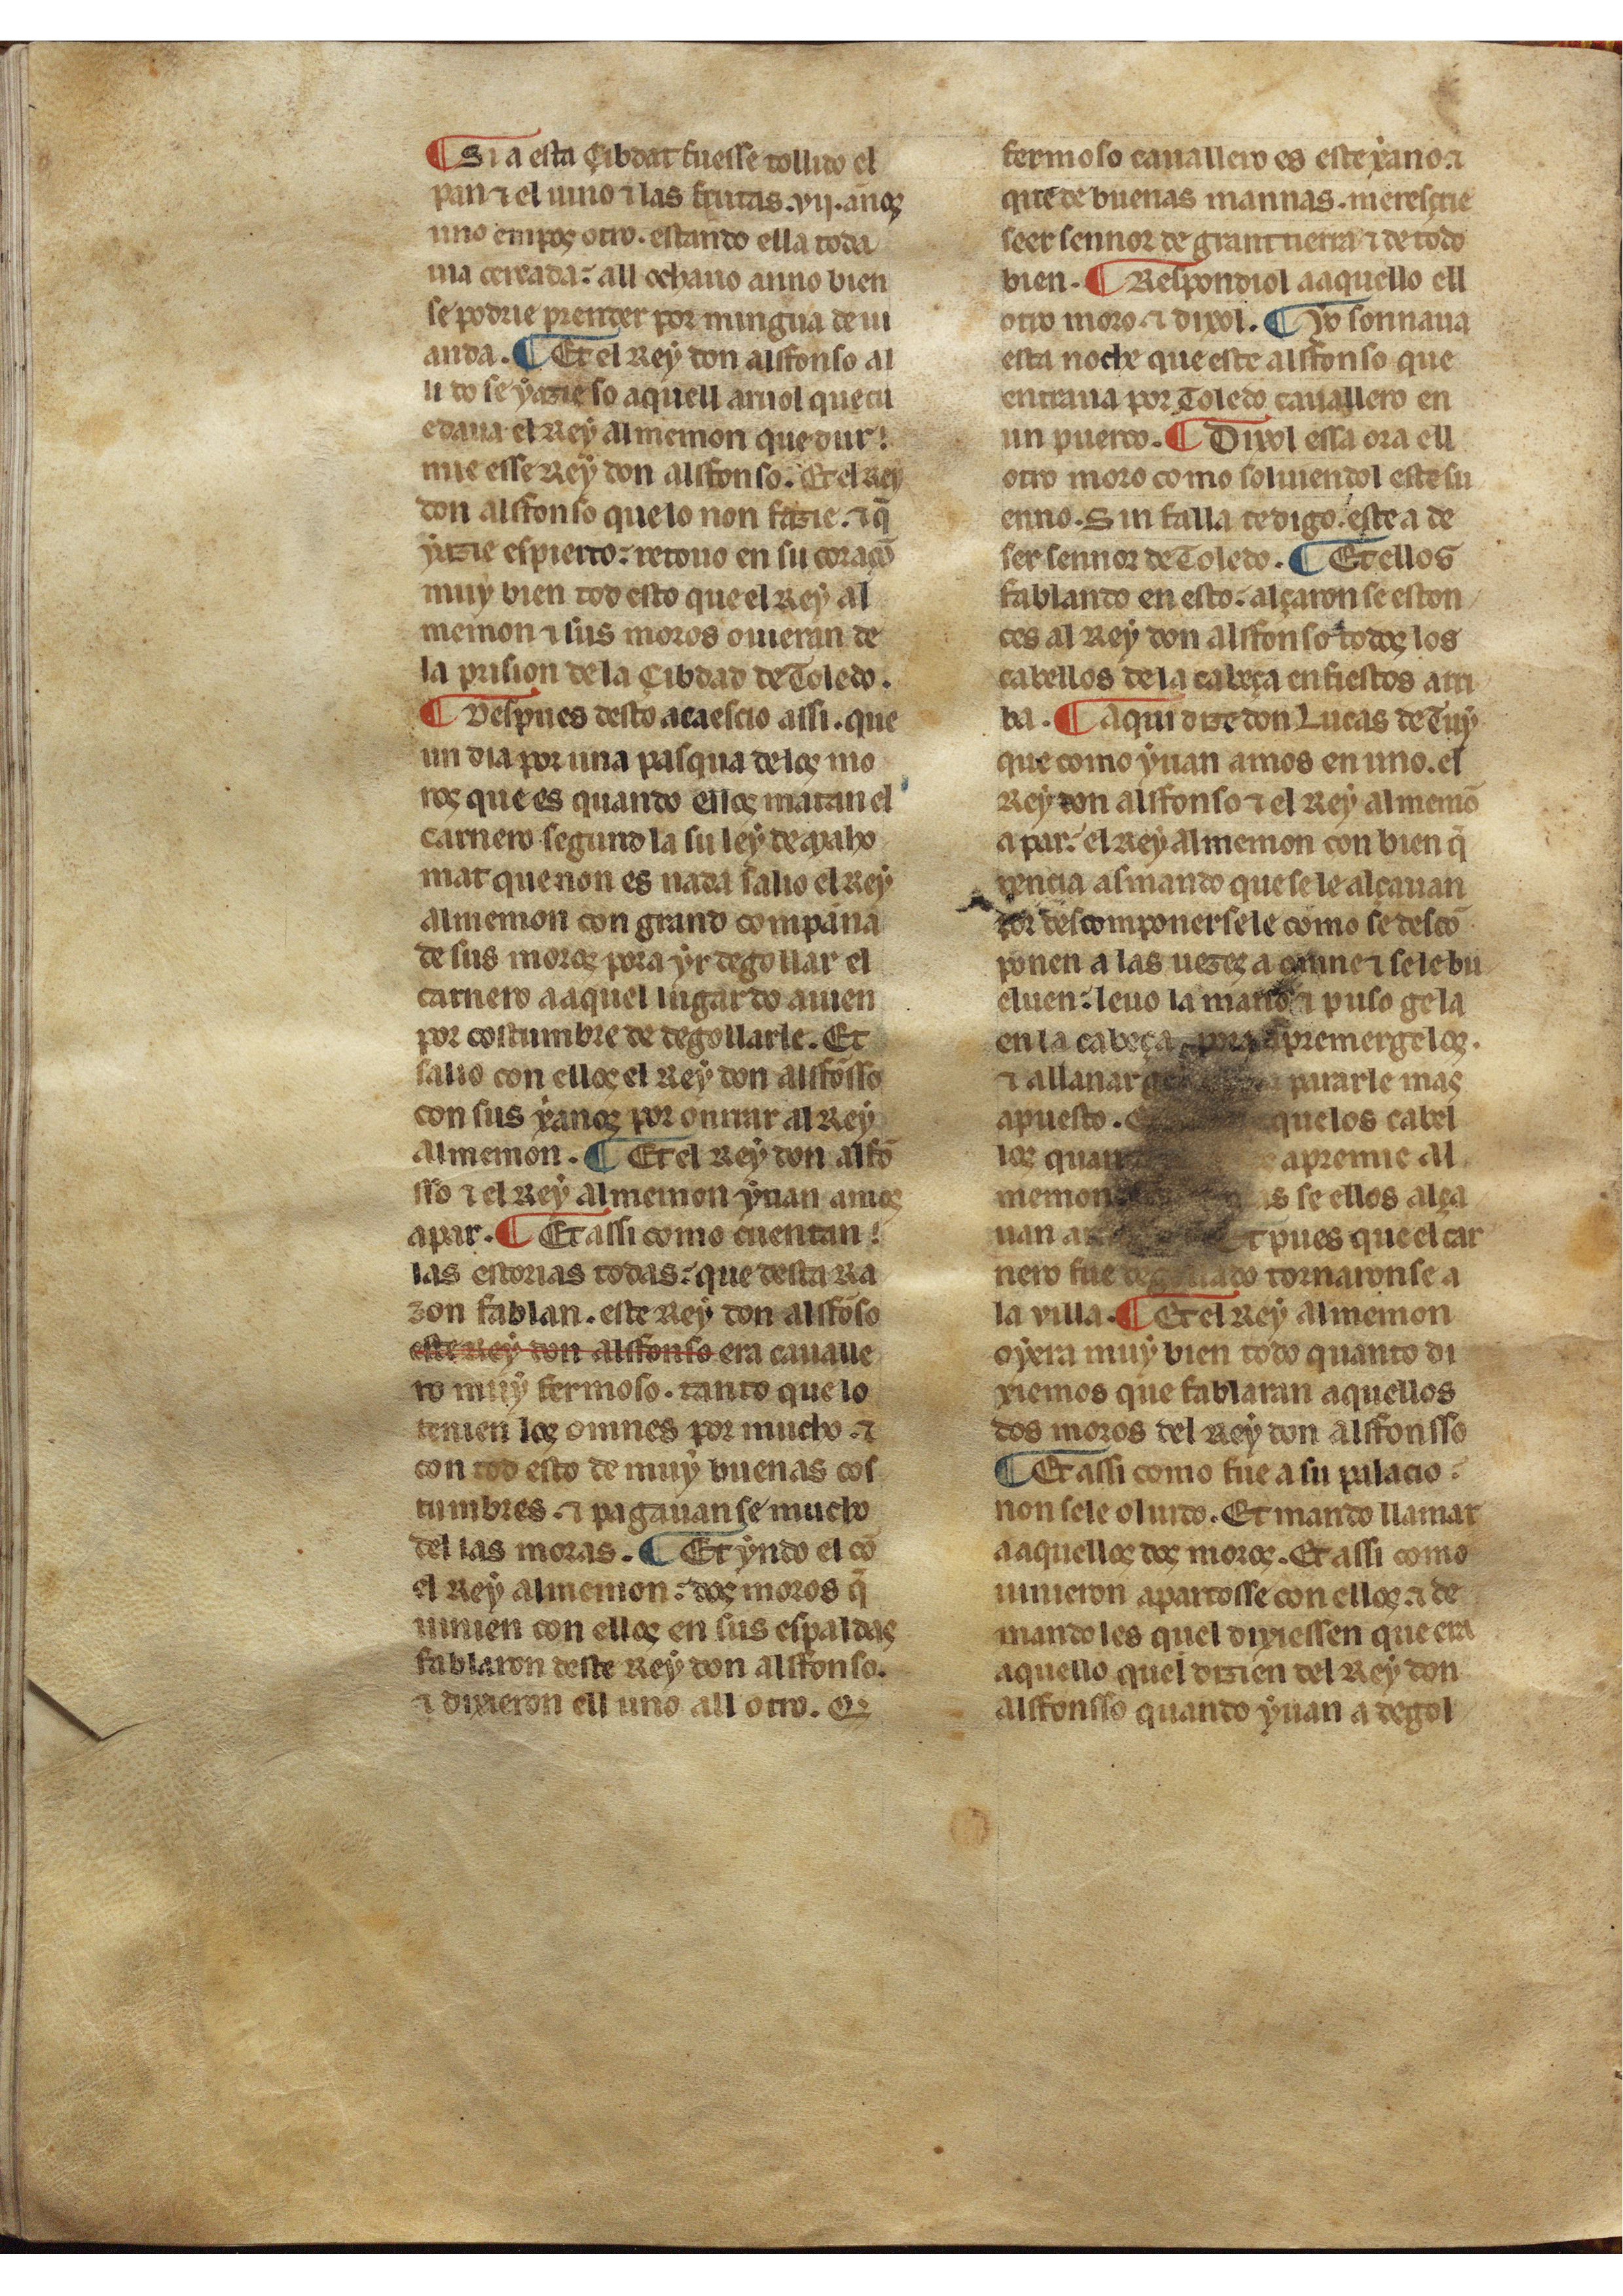 ¶ Si a esta Çibdat fuesse tollido el
pan ⁊ el uino ⁊ las frutas .vij. an̄os
uno empos otro. estando ella toda
uia cercada: all ochauo anno bien
se podrie prender por mingua de ui
anda. ¶ Et el Rey don alffonso al
li do se yazie so aquell aruol que cu
edaua el Rey Almemon que dur!
mie esse Rey don Alffonso. Et el Rey
don alffonso que lo non fazie. ⁊ q̄
yazie espierto: retouo en su coraçō
muy bien tod esto que el Rey Al
memon ⁊ sus moros ouieran de
la prision de la Çibdad de Toledo.
¶ Despues desto acaescio assi. que
un dia por una pasqua de los mo
ros que es quando ellos matan el
carnero segund la su ley de Maho
mat que non es nada salio el Rey
Almemon con grand compān̄a
de sus moros pora yr degollar el
carnero a aquel lugar do auien
por costumbre de degollarle. Et
salio con ellos el Rey don alffōsso
con sus x̄anos por onrrar al Rey
Almemon. ¶ Et el Rey don alfō
sso ⁊ el Rey Almemon yuan amos
a par. ¶ Et assi como cuentan!
las estorias todas: que desta Ra
zon fablan. este Rey don alffōso
este Rey don Alffonso era caualle
ro muy fermoso. tanto que lo
tenien los omnes por mucho. ⁊
con tod esto de muy buenas cos
tumbres. ⁊ pagauan se mucho
del las moras. ¶ Et yndo el cō
el Rey Almemon: dos moros q̄
uinien con ellos en sus espaldas
fablaron deste Rey don Alffonso.
⁊ dixieron ell uno all otro. Q̄
fermoso cauallero es este x̄ano. ⁊
que de buenas mannas. meresçrie
seer sennor de grant tierra ⁊ de todo
bien. ¶ Respondiol a aquello ell
otro moro ⁊ dixol. ¶ Yo sonnaua
esta noche que este alffonso que
entraua por Toledo cauallero en
un puerco. ¶ Dixol essa ora ell
otro moro como soluiendol este su
enno. Sin falla te digo. este a de
ser sennor de Toledo. ¶ Et ellos
fablando en esto: alçaron se eston
ces al Rey don Alffonso todos los
cabellos de la cabeça enfiestos arri
ba. ¶ Aqui dize don Lucas de Tuy
que como yuan amos en uno. el
Rey don alffonso ⁊ el Rey Almemō
a par: el Rey Almemon con bien q̄
rencia asmando que se le alçauan
por descomponersele como se descō
ponen a las uezes a omne ⁊ se le bu
eluen: leuo la mano ⁊ puso gela
en la cabeça pora apremergelos.
⁊ allanar pararle mas
apuesto. que los cabel
los quan apremie Al
memon mas se ellos alça
uan ar Et pues que el car
nero fue degollado tornaron se a
la villa. ¶ Et el Rey Almemon
oyera muy bien todo quanto di
xiemos que fablaran aquellos
dos moros del Rey don Alffonsso
¶ Et assi como fue a su palacio:
non se le oluido. Et mando llamar
a aquellos dos moros. Et assi como
uinieron apartosse con ellos. ⁊ de
mando les quel dixiessen que era
aquello quel dizien del Rey don
Alffonsso quando yuan a degol